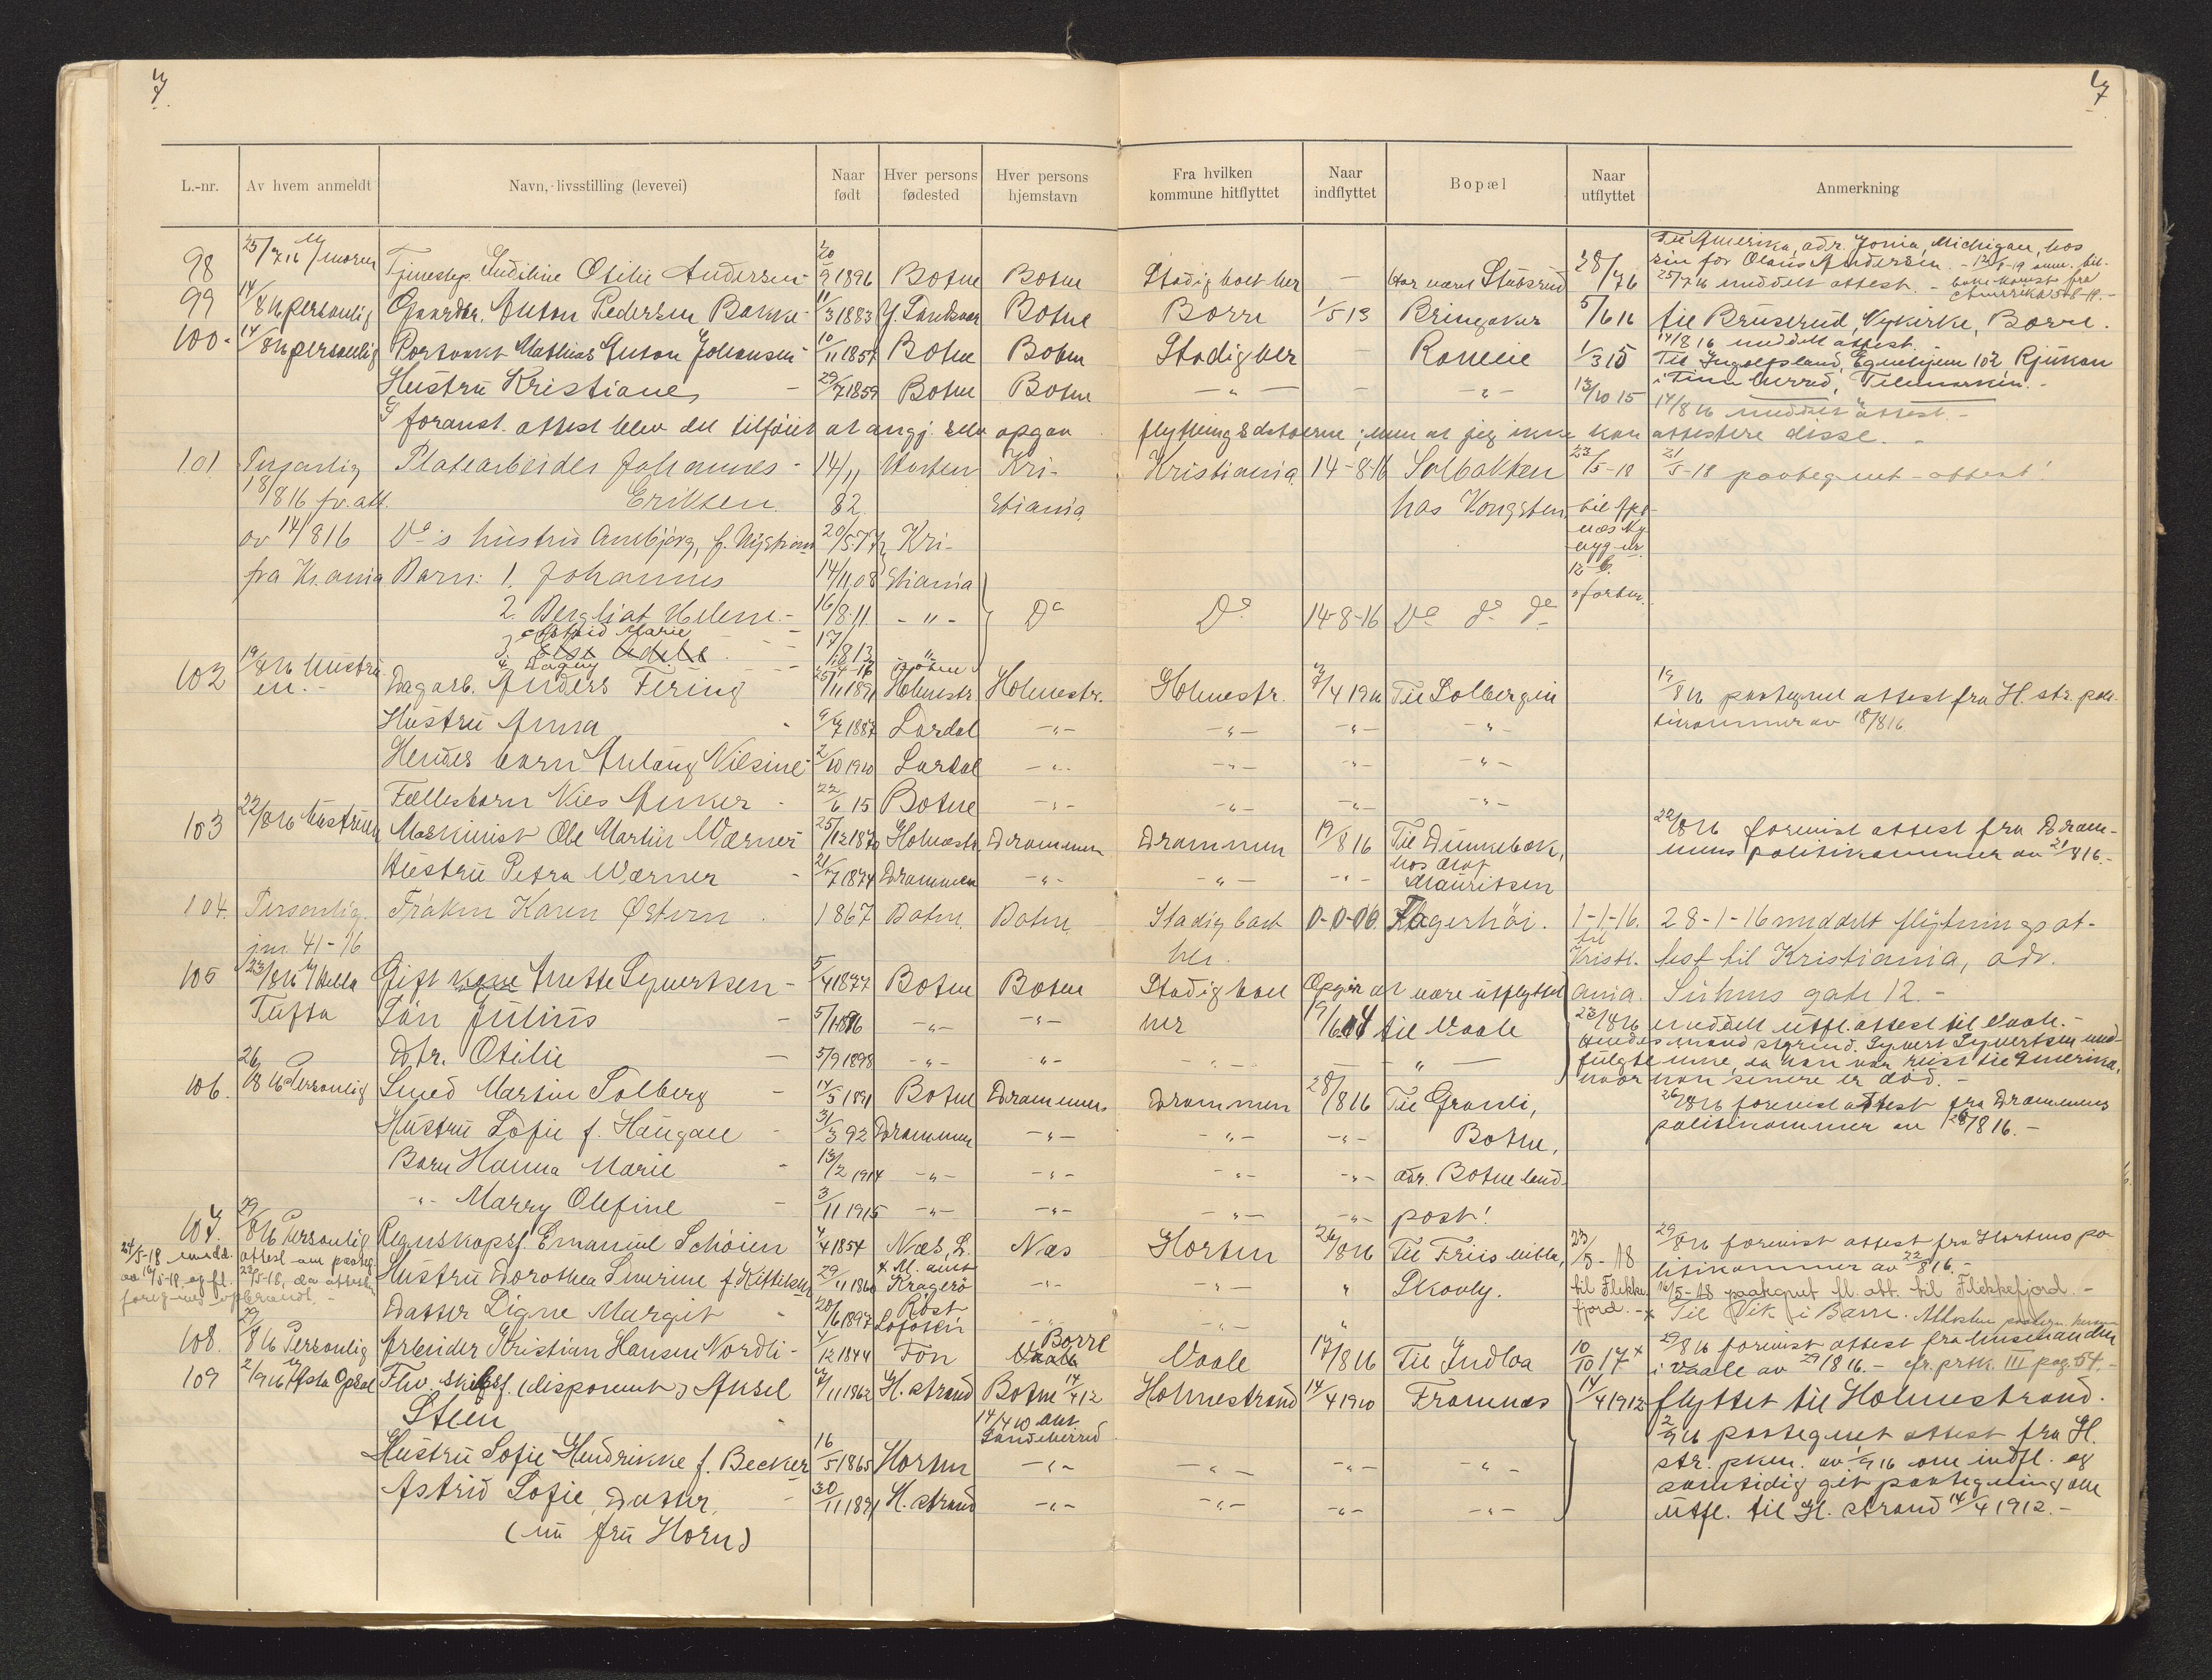 7
7
L.-nr. Av hvem anmeldt Navn, livsstilling (levevei) Naar født Hver persons fødested Hver persons hjemstavn Fra hvilken kommune hitflyttet Naar indflyttet Bopæl Naar utflyttet Anmerkning
Til Amerika, adr. Jonia, Michigan, hos
98 25/7 16 v/ moren Tjenestep. Otilie Andersen - 20/9 1896 Botne Botne Stadig boet her — Har været 28/7 16 sin far Olaus Andersen. -
25/7 16 meddelt attest. - Amerika
99 14/8 16 personlig Gaardbr. Anton Pedersen Bakke - 11/3 1883 Botne Borre 1/5 13 Bringaker 5/6 16 til Bruserud, Nykirke, Borre.
14/8 16 meddelt attest.
100 - 14/8 16 personlig Portvakt Mathias Anton Johansen - 10/11 1857 Botne Botne Stadig her — 1/3 15 Til Ingolfsland, Egnehjem 102 Rjukan
Hustru Kristiane - 29/7 1859 Botne Botne -"- - -"- 13/10 15 i Tinn herred, Telemarken. -
14/8 16 meddelt attest. -
I foranst. attest blev det tilføiet at angj. selv opgav flytningsdatoerne, men at jeg ikke kan attestere disse. -
101 Personlig Platearbeider Johannes - 14/11 Horten Kri- Kristiania 14-8-16 Solbakken 23/5-18 21/5-18 paategnet attest!
18/8 16 fr. att. Eriksen. 82. stiania hos Kongsten,
av 14/8 16 Do's hustru Annbjørg, f. 20/5 Kri-
fra Kr.ania Barn: 1. Johannes 14/11 08 stiania
2. Bergliot Helene. - 16/8-11 - " - Do Do 14-8-16 Do do do
3. Astrid Marie 17/1 813 "
4. Dagny 16 Botne
102 19/8 16 Hustru en. - Dagarb. Anders Fering 25/11 1891 Holmestr. Holmestr. Holmestr. 7/4 1916 Til Solbergen 19/8 16 paategnet attest fra H. str. poli-
Hustru Anna - 9/7 1887 Lardal -"- -"- -"- -"- tikammer av 18/8 16
Hendes barn Antaug Nilsine - 2/10 1910 Lardal -"- -"- -"- -"-
Fællesbarn Nils Anker - 22/6 15 Botne -"- -"- -"- -"-
103 22/8 16 Hustruen Maskinist Ole Martin Wærner - 25/12 1870 Holmestr. Drammen Drammen 19/8 16 Til Dunkebæk, 22/8 16 forevist attest fra Dram-
mens politikammer av 21/8 16. -
Hustru Petra Wærner - 21/7 1874 Drammen -"- -"- -"- hos Olaf Mauritsen
104. Personlig. Frøken Karen Østern - 1867 Botne. Botne Stadig boet 0-0-00. Fagerhøi. 1-1-16. 28-1-16 meddelt flytningsat-
jnr. 41-16 her. til Kristi- test til Kristiania, adr.
105 23/8 16 v/ Hella Gift kone Anette Syvertsen - 5/4 1877 Botne Botne Stadig boet Opgir at være utflyttet ania. Suhms gate 12. -
Tufta Søn Julius - 5/1 1896 -"- -"- her 19/6 04 til Vaale 23/8 16 meddelt utfl. attest til Vaale. -
Hendes mand Syvert Syvertsen med-
Dtr. Otilie - 5/9 1898 -"- -"- -"- -"- fulgte inne, da han var reist til Amerika,
hvor han senere er død. -
106. 26/8 16 Personlig Smed Martin Solberg - 14/5 1891 Botne Drammen Drammen 28/8 16 Til Granli, 26/8 16 forevist attest fra Drammens
Hustru Sofie f. Haugan - 31/3 92 Drammen -"- -"- -"- Botne, politikammer av 26/8 16. -
Barn Hanna Marie - 13/2 1914 -"- -"- -"- -"- adr. Botne land-
-"- Marry Olefine - 3/11 1915 -"- -"- -"- -"- post!
107. 29/8 16 Personlig Regnskapsf. Emanuel Schøien 4/4 1854 Næs, L. Næs Horten 26/8 16 Til Friis villa, 23/5-18 29/8 16 forevist attest fra Hortens po-
24/5-18 medd. attest om paateg. Hustru Dorothea Severine f. Kittilsen 29/11 1860 Kragerø -"- -"- " Skovly. litikammer av 22/8 16. -
til Flekke- 16/5-18 paategnet fl. att. til Flekkefjord. -
Datter Signe Margit - 20/6 1897 Røst Lofoten -"- -"- " fjord. - x Til Vik i Borre.
108. 29/8 16 Personlig Arbeider Kristian Hansen Nordli - 4/12 1844 Fon Borre Vaale Vaale 17/8 16 Til Indlaa 10/10 17 x 29/8 16 forevist attest fra lensmanden
i Vaale av 29/8 16. - jfr. prtk. III pag. 54. -
109 2/9 16 v/ Asta Opsal Fhv. skibsf. (disponent) Aksel 7/11 1862 H. strand Botne 14/4 12 Holmestrand 14/4 1910 Framnæs 14/4 1912 flyttet til Holmestrand.
Steen 14/4 10 Sandeherred 2/9 16 paategnet attest fra H.
Hustru Sofie Hendrikke f. Becker 16/5 1865 Horten -"- -"- -"- -"- str. pkm. av 1/9 16 om indfl. og
Astrid Sofie, datter, - 30/11 1891 H. strand -"- -"- -"- -"- samtidig git paategning om
(nu fru Horn) utfl. til H. strand 14/4 1912. -